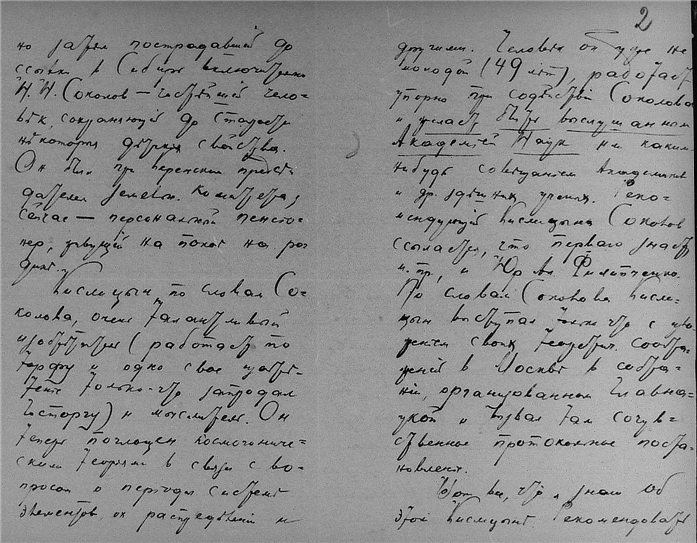 2
но затем пострадавший до
ссылки в Сибирь включительно
Н.Н. Соколов — чистейший чело-
век, сохраняющий до старости
некоторые детские свойства.
Он был при Керенском предсе-
дателем земельн. комитета,
сейчас — персональный пенсио-
нер, живущий на покое на ро-
дине.
Кислицын по словам Со-
колова, очень талантливый
изобретатель (работает по
торфу и одно свое изобре-
тение только-что запродал
Госторгу) и мыслитель. Он
теперь поглощен космогониче-
скими теориями в связи с во-
просом о периодич. системе
элементов, их распределении и
другими. Человек он уже не
молодой (49 лет), работает
упорно при содействии Соколова
и желает быть выслушанном
Академией Наук или каким
нибудь совещанием Академиков
и др. ученых. Реко-
мендующий Кислицына Соколов
ссылается, что первого знает
и Юр. Ал. Филипченко.
По словам Соколова Кисли-
цын выступал только что с
своих теоретич. сообщ
в Москве в собра-
нии, организованном Главна-
укой и вызвал там сочув-
ственное протокольное поста-
новление.
Вот все, что я знаю об
этом Кислицыне. Рекомендовать